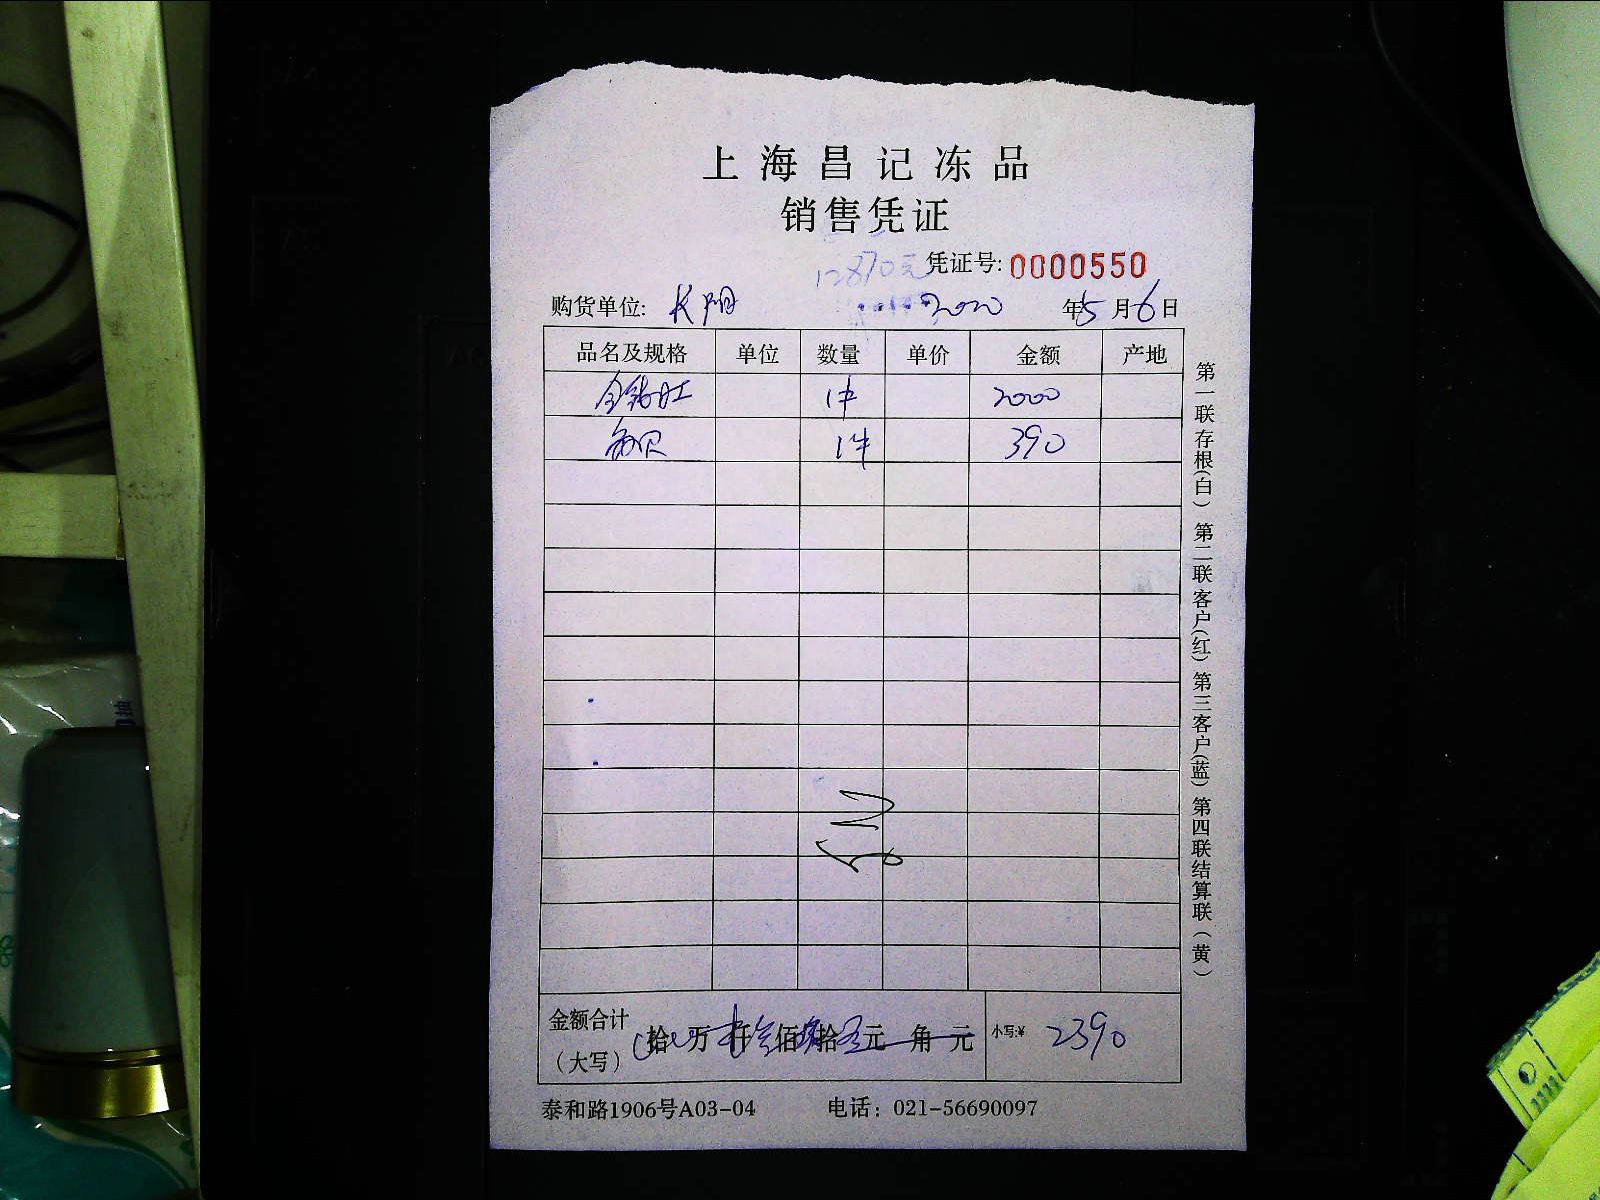 上海昌记冻品
销售凭证
12870元 凭证号: 0000550
购货单位: 长阳 2020 年5月6日
品名及规格 单位 数量 单价 金额 产地
1件 2000
1件 390
金额合计 拾 万 仟 佰 拾 元 角 元 小写:¥ 2390
(大写)
泰和路1906号A03-04 电话: 021-56690097
第一联存根(白) 第二联客户(红) 第三客户(蓝) 第四联结算联(黄)